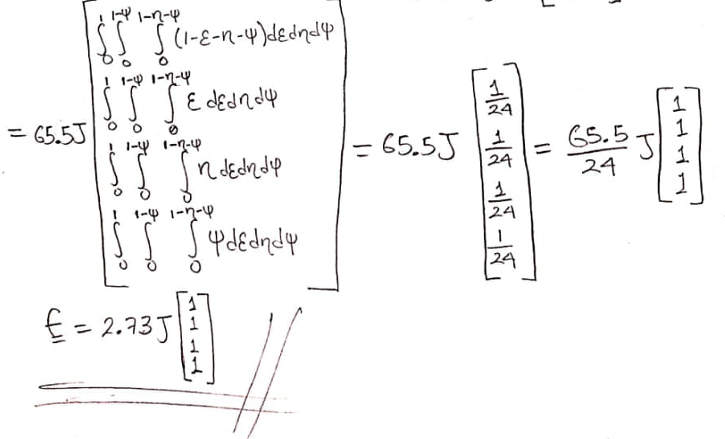 = 65.5J [ ∫₀¹ ∫₀^(1-ψ) ∫₀^(1-η-ψ) (1-ε-η-ψ)dεdηdψ
∫₀¹ ∫₀^(1-ψ) ∫₀^(1-η-ψ) ε dεdηdψ
∫₀¹ ∫₀^(1-ψ) ∫₀^(1-η-ψ) η dεdηdψ
∫₀¹ ∫₀^(1-ψ) ∫₀^(1-η-ψ) ψ dεdηdψ ] = 65.5J [ 1/24 1/24 1/24 1/24 ] = 65.5/24 J [ 1 1 1 1 ]
f = 2.73J [ 1 1 1 1 ]